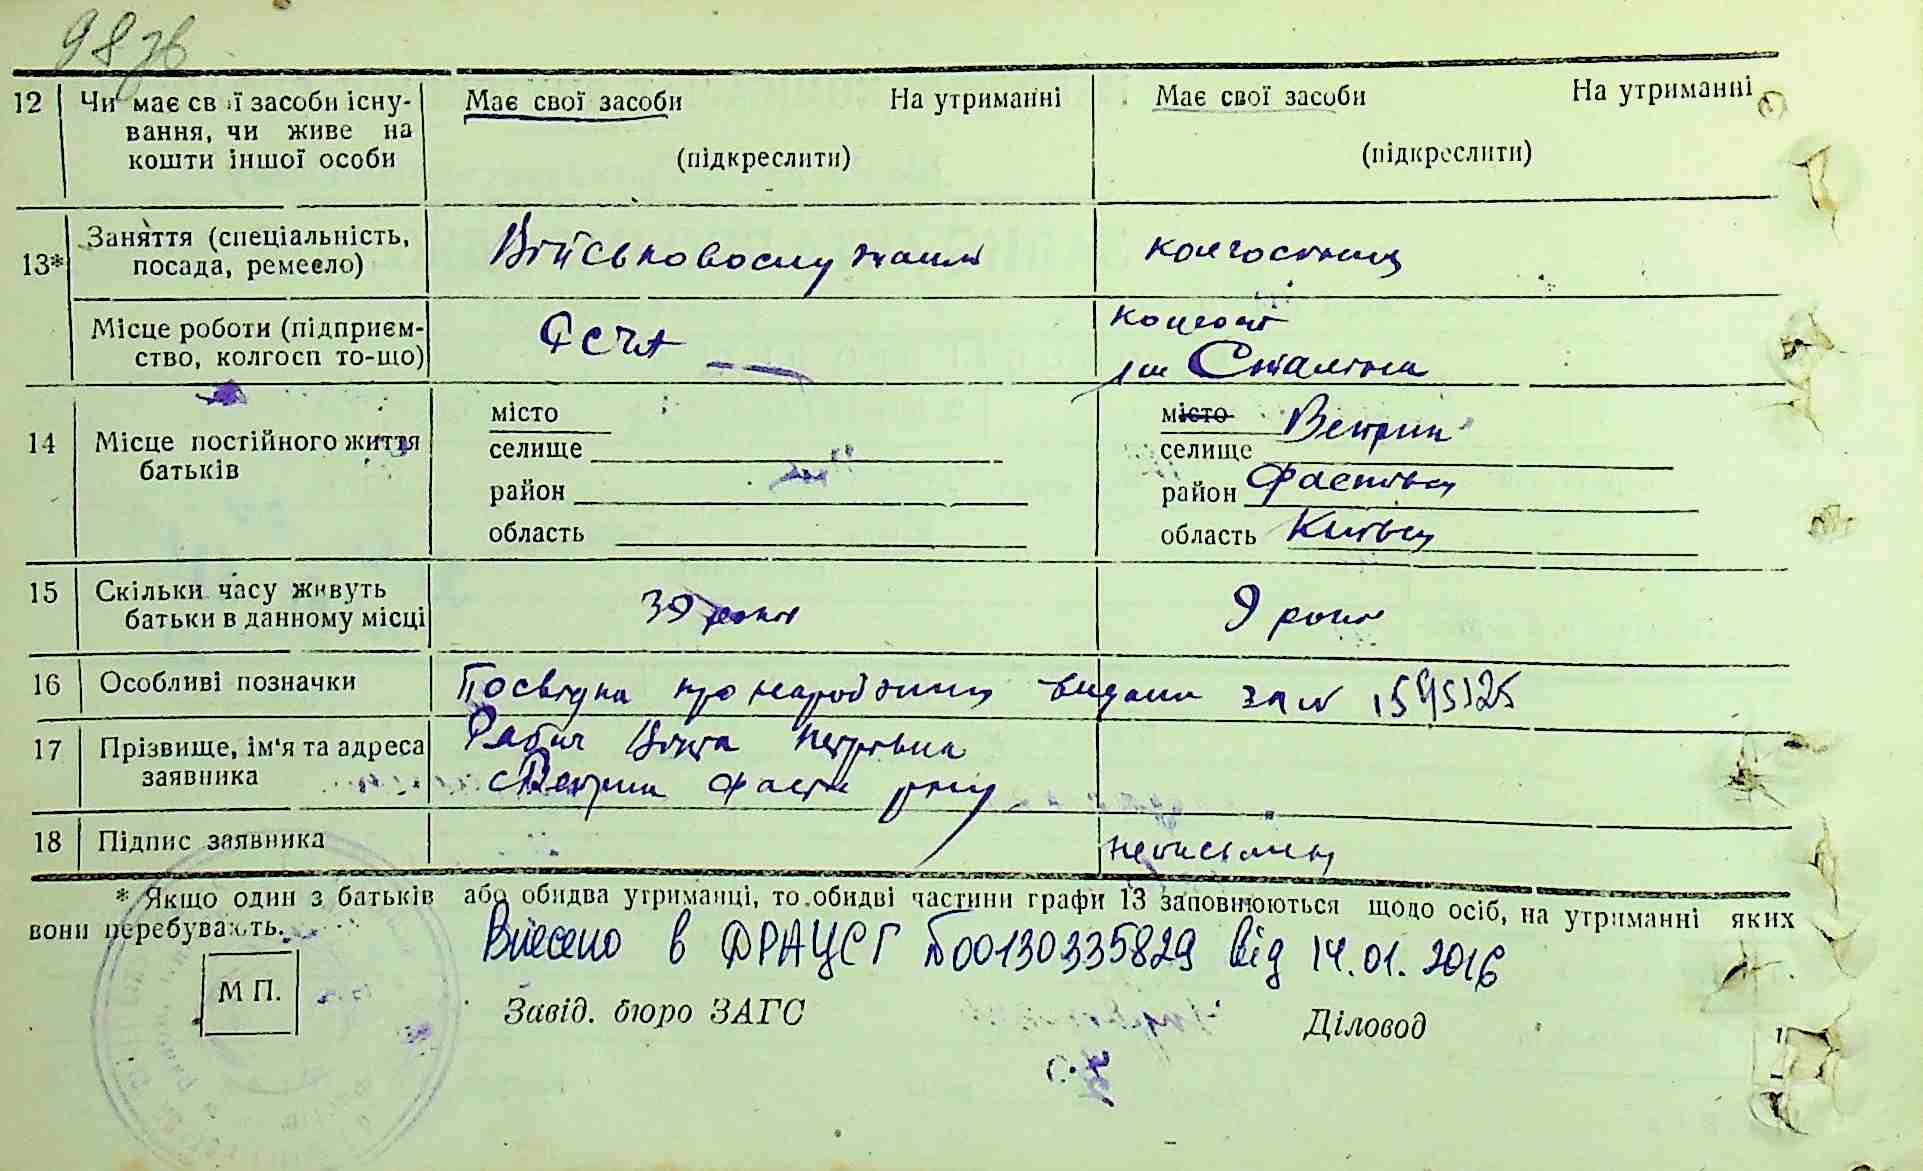 98 зв
12 Чи має свої засоби існу- Має свої засоби На утриманні Має свої засоби На утриманні
вання, чи живе на
кошти іншої особи (підкреслити) (підкреслити)
13* Заняття (спеціальність, Військовослу колгоспниц
посада, ремесло)
Місце роботи (підприєм- РСЧА колгосп
ство, колгосп то-що) ім Сталіна
14 Місце постійного життя батьків
місто місто
селище селище Ветрин
район район Фастівсц
область область Київсц
15 Скільки часу живуть 39 роки 9 роки
батьки в данному місці
16 Особливі позначки Посвідка про народжинц видана за №
17 Прізвище, ім'я та адреса Петрівна
заявника с Фаст
18 Підпис заявника неписьмен
* Якщо один з батьків або обидва утриманці, то обидві частини графи 13 заповнюються щодо осіб, на утриманні яких
вони перебувають.
Внесено в ДРАЦСГ №00130335829 від 14.01.2016
М П.
Завід. бюро ЗАГС Діловод